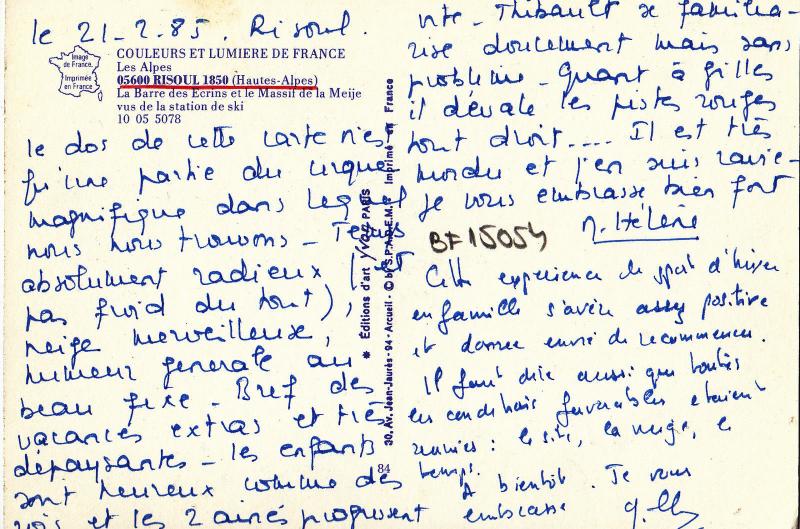 le 21-2.85. Risoul.
Image
de France
Imprimée
en France
COULEURS ET LUMIERE DE FRANCE
Les Alpes
05600 RISOUL 1850 (Hautes-Alpes)
La Barre des Ecrins et le Massif de la Meije
vus de la station de ski
10 05 5078
le dos de cette carte n'est
qu'une partie du cirque
magnifique dans lequel
nous nous trouvons - Temps
absolument radieux (et
pas froid du tout),
neige merveilleuse,
humeur generale au
beau fixe - Bref des
vacances extras et très
dépaysantes - les enfants
sont heureux comme des
rois et les 2 ainés progressent
* Éditions d'art yvon PARIS
30, Av. Jean-Jaurès - 94 - Arcueil - © by S.P.A.D.E.M. Imprimé en France
84
vite - Thibault se familia-
rise doucement mais sans
problème - Quant à Gilles
il dévale les pistes rouges
tout droit.... Il est très
mordu et j'en suis ravie -
je vous embrasse bien fort
M. Hélène
BF15054
Cette expérience de sport d'hiver
en famille s'avère assez positive
et donne envie de recommencer.
Il faut dire aussi que toutes
les conditions favorables étaient
réunies : le site, la neige, le
temps.
A bientôt. Je vous
embrasse